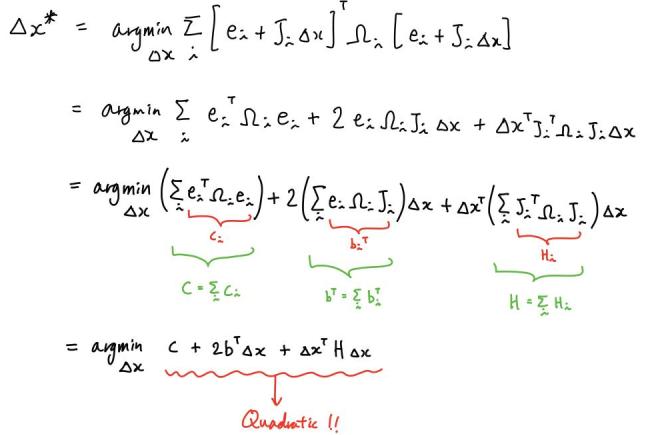 Δx* = argmin_Δx Σ_i [e_i + J_i Δx]^T Ω_i [e_i + J_i Δx]
= argmin_Δx Σ_i e_i^T Ω_i e_i + 2 e_i Ω_i J_i Δx + Δx^T J_i^T Ω_i J_i Δx
= argmin_Δx (Σ_i e_i^T Ω_i e_i) + 2(Σ_i e_i Ω_i J_i) Δx + Δx^T (Σ_i J_i^T Ω_i J_i) Δx
c_i b_i^T H_i
C = Σ_i C_i b^T = Σ_i b_i^T H = Σ_i H_i
= argmin_Δx c + 2b^T Δx + Δx^T H Δx
Quadratic !!